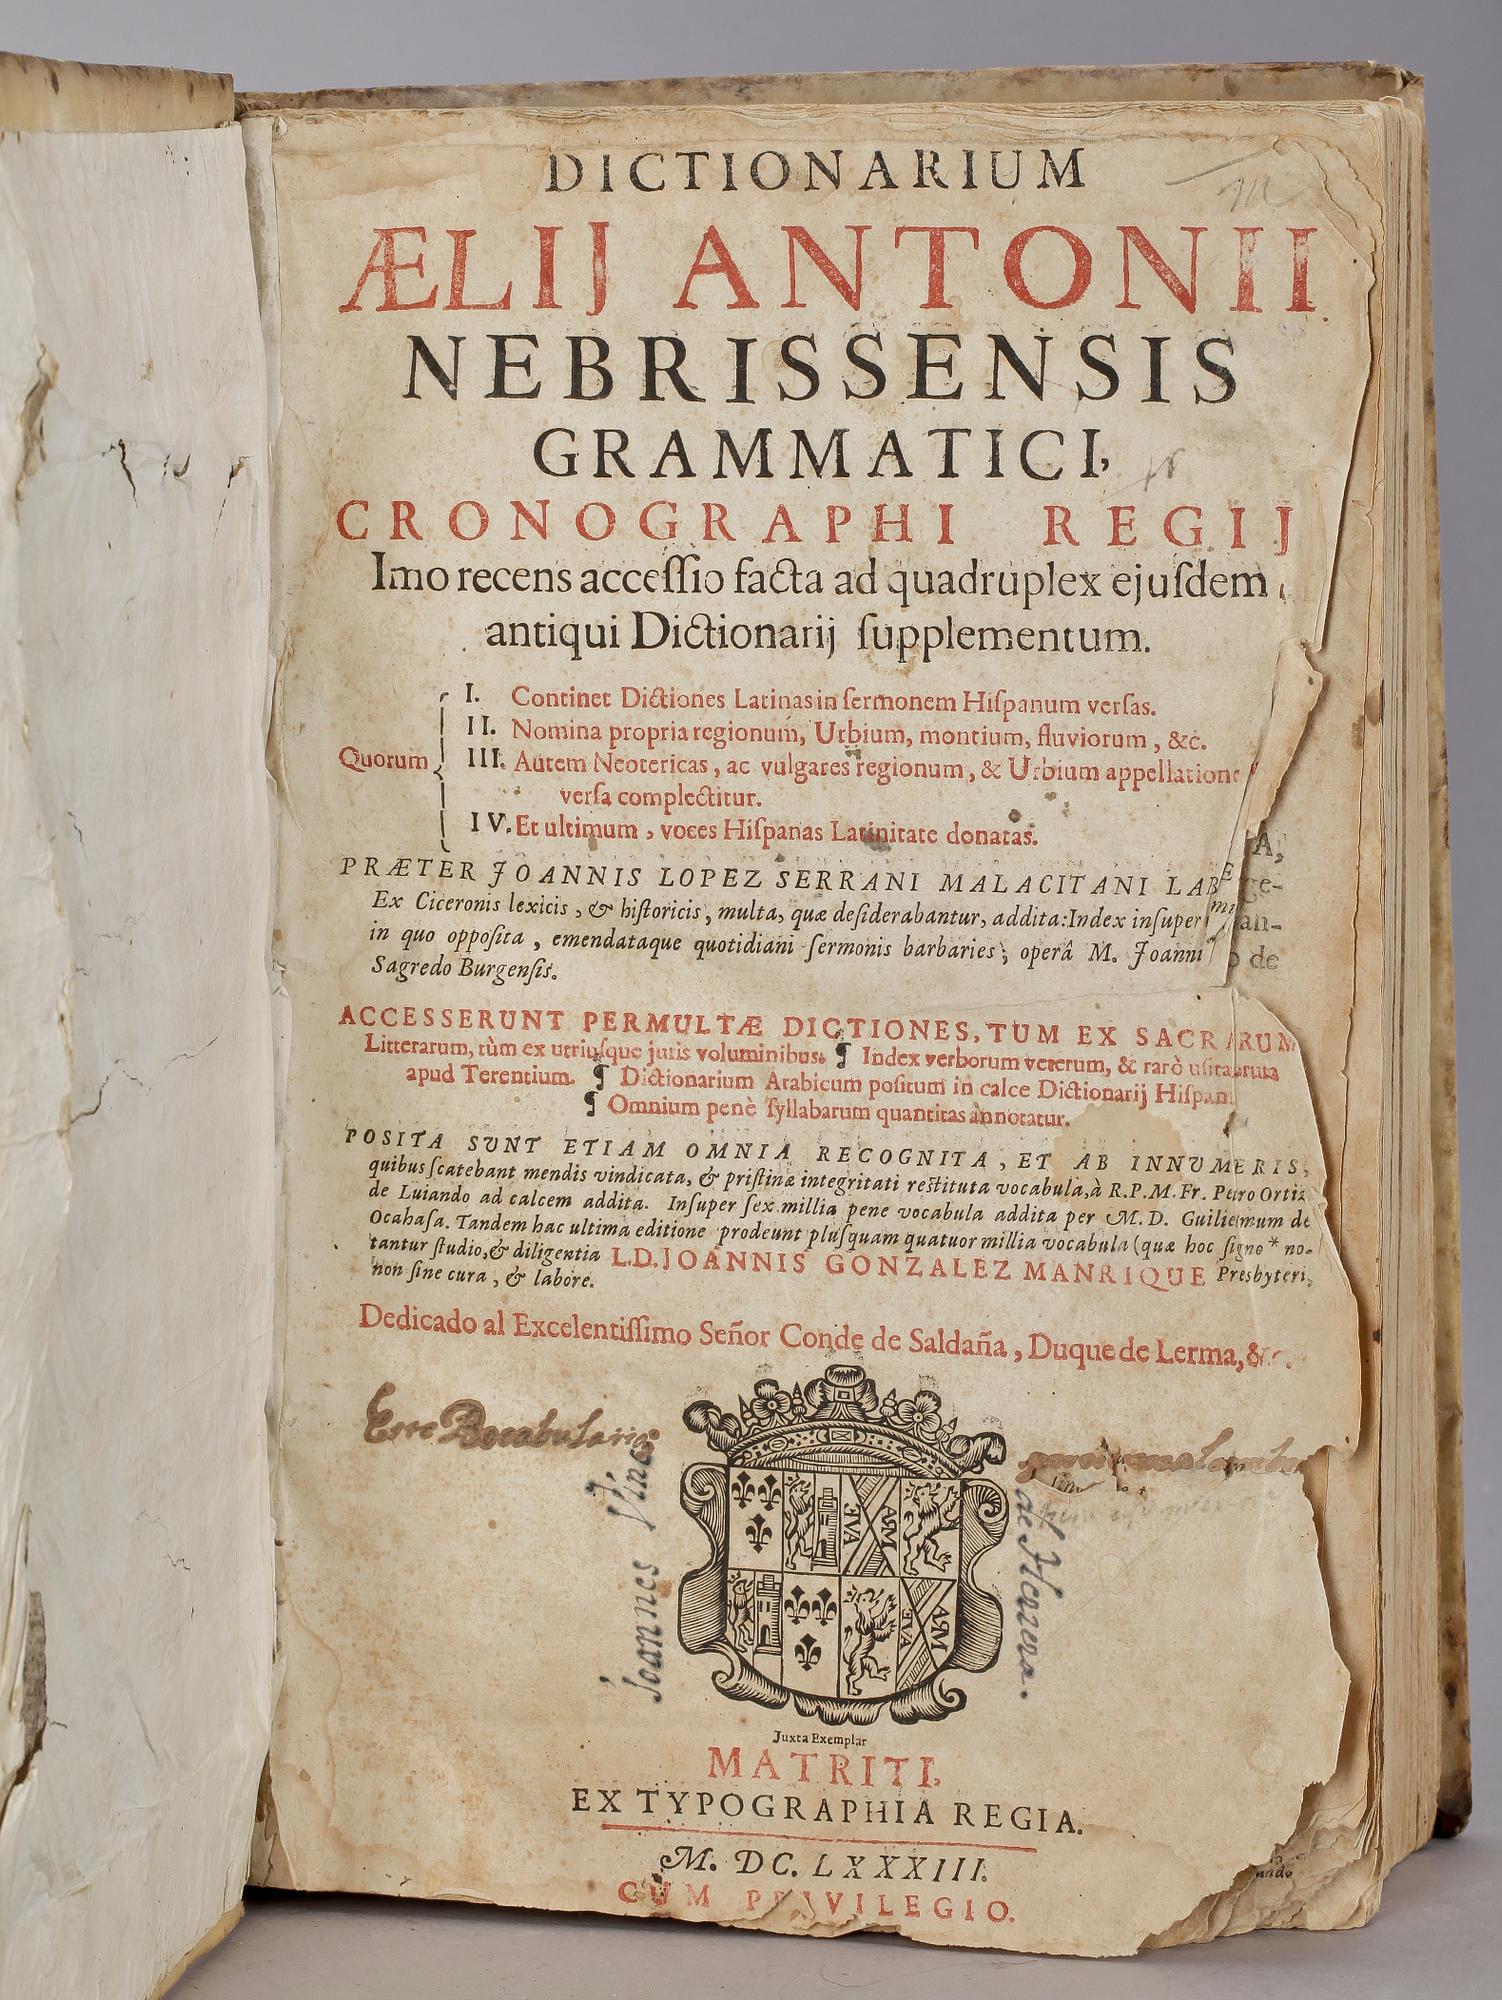 DICTIONARIUM
ÆLIJ ANTONII
NEBRISSENSIS
GRAMMATICI,
CRONOGRAPHI REGIJ
Imo recens acceſſio facta ad quadruplex ejuſdem
antiqui Dictionarij ſupplementum.
Quorum
I. Continet Dictiones Latinas in ſermonem Hiſpanum verſas.
II. Nomina propria regionum, Urbium, montium, fluviorum, &c.
III. Autem Neotericas, ac vulgares regionum, & Urbium appellatione
verſa complectitur.
IV. Et ultimum, voces Hiſpanas Latinitate donatas.
PRÆTER JOANNIS LOPEZ SERRANI MALACITANI LAB
Ex Ciceronis lexicis, & hiſtoricis, multa, quæ deſiderabantur, addita: Index inſuper
in quo oppoſita, emendataque quotidiani ſermonis barbaries; operâ M. Joanni
Sagredo Burgenſis.
A,
ge-
an-
de
ACCESSERUNT PERMULTÆ DICTIONES, TUM EX SACRARUM
Litterarum, tùm ex utriuſque juris voluminibus. ¶ Index verborum veterum, & rarò
apud Terentium. ¶ Dictionarium Arabicum poſitum in calce Dictionarij Hiſpan
¶ Omnium penè ſyllabarum quantitas annotatur.
POSITA SUNT ETIAM OMNIA RECOGNITA, ET AB INNUMERIS,
quibus ſcatebant mendis vindicata, & priſtinæ integritati reſtituta vocabula, à R.P.M.Fr. Petro Ortiz
de Luiando ad calcem addita. Inſuper ſex millia pene vocabula addita per M. D. Guilielmum de
Ocahaſa. Tandem hac ultima editione prodeunt pluſquam quatuor millia vocabula (quæ hoc ſigno * no-
tantur ſtudio, & diligentia L.D. JOANNIS GONZALEZ MANRIQUE Presbyteri,
non ſine cura, & labore.
Dedicado al Excelentiſſimo Señor Conde de Saldaña, Duque de Lerma, &c.
Este Bocabulario
Joannes
de Herrera.
AVE
AVE
Juxta Exemplar
MATRITI,
EX TYPOGRAPHIA REGIA.
M. DC. LXXXIII.
CUM PRIVILEGIO.